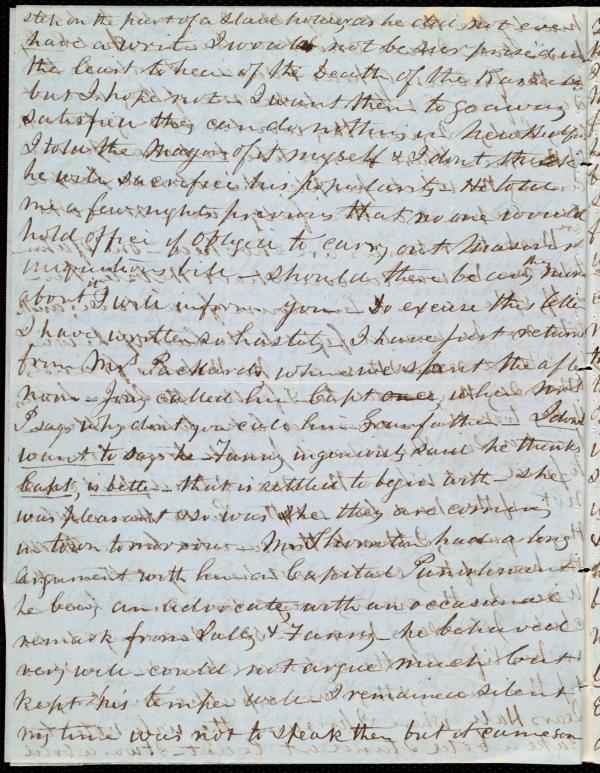 step on the part of a slave holder, as he did not even
have a writ I would not be surprised in
the least to hear of the Death of the
but I hope not - I want them to go away
satisfied they can do nothing in New
I told the Mayor of it myself & I dont think
he will sacrifice his popularity - He told
me a few nights previous that no one would
hold office if obliged to carry out Masons
iniquitous bill - should there be any thing more
about it I will inform you - Do excuse this letter
I have written so hastily I have just return
from Mrs Packards where we spent the after
noon - Jony called him Capt once, when Mrs
P says why dont you call him Grandfather I dont
want to says he - Fanny ingeniously said he thinks
Capt, is better - that is settled to begin with - she
was pleasant & so was she they are coming
in town tomorrow - Mrs Thornton had a long
argument with him on Capital Punishment
he being an advocate, with an occasional
remark from Sally & Fanny - he behaved
very well - could not argue much but
kept his temper well - I remained silent
my time was not to speak then but it came soon